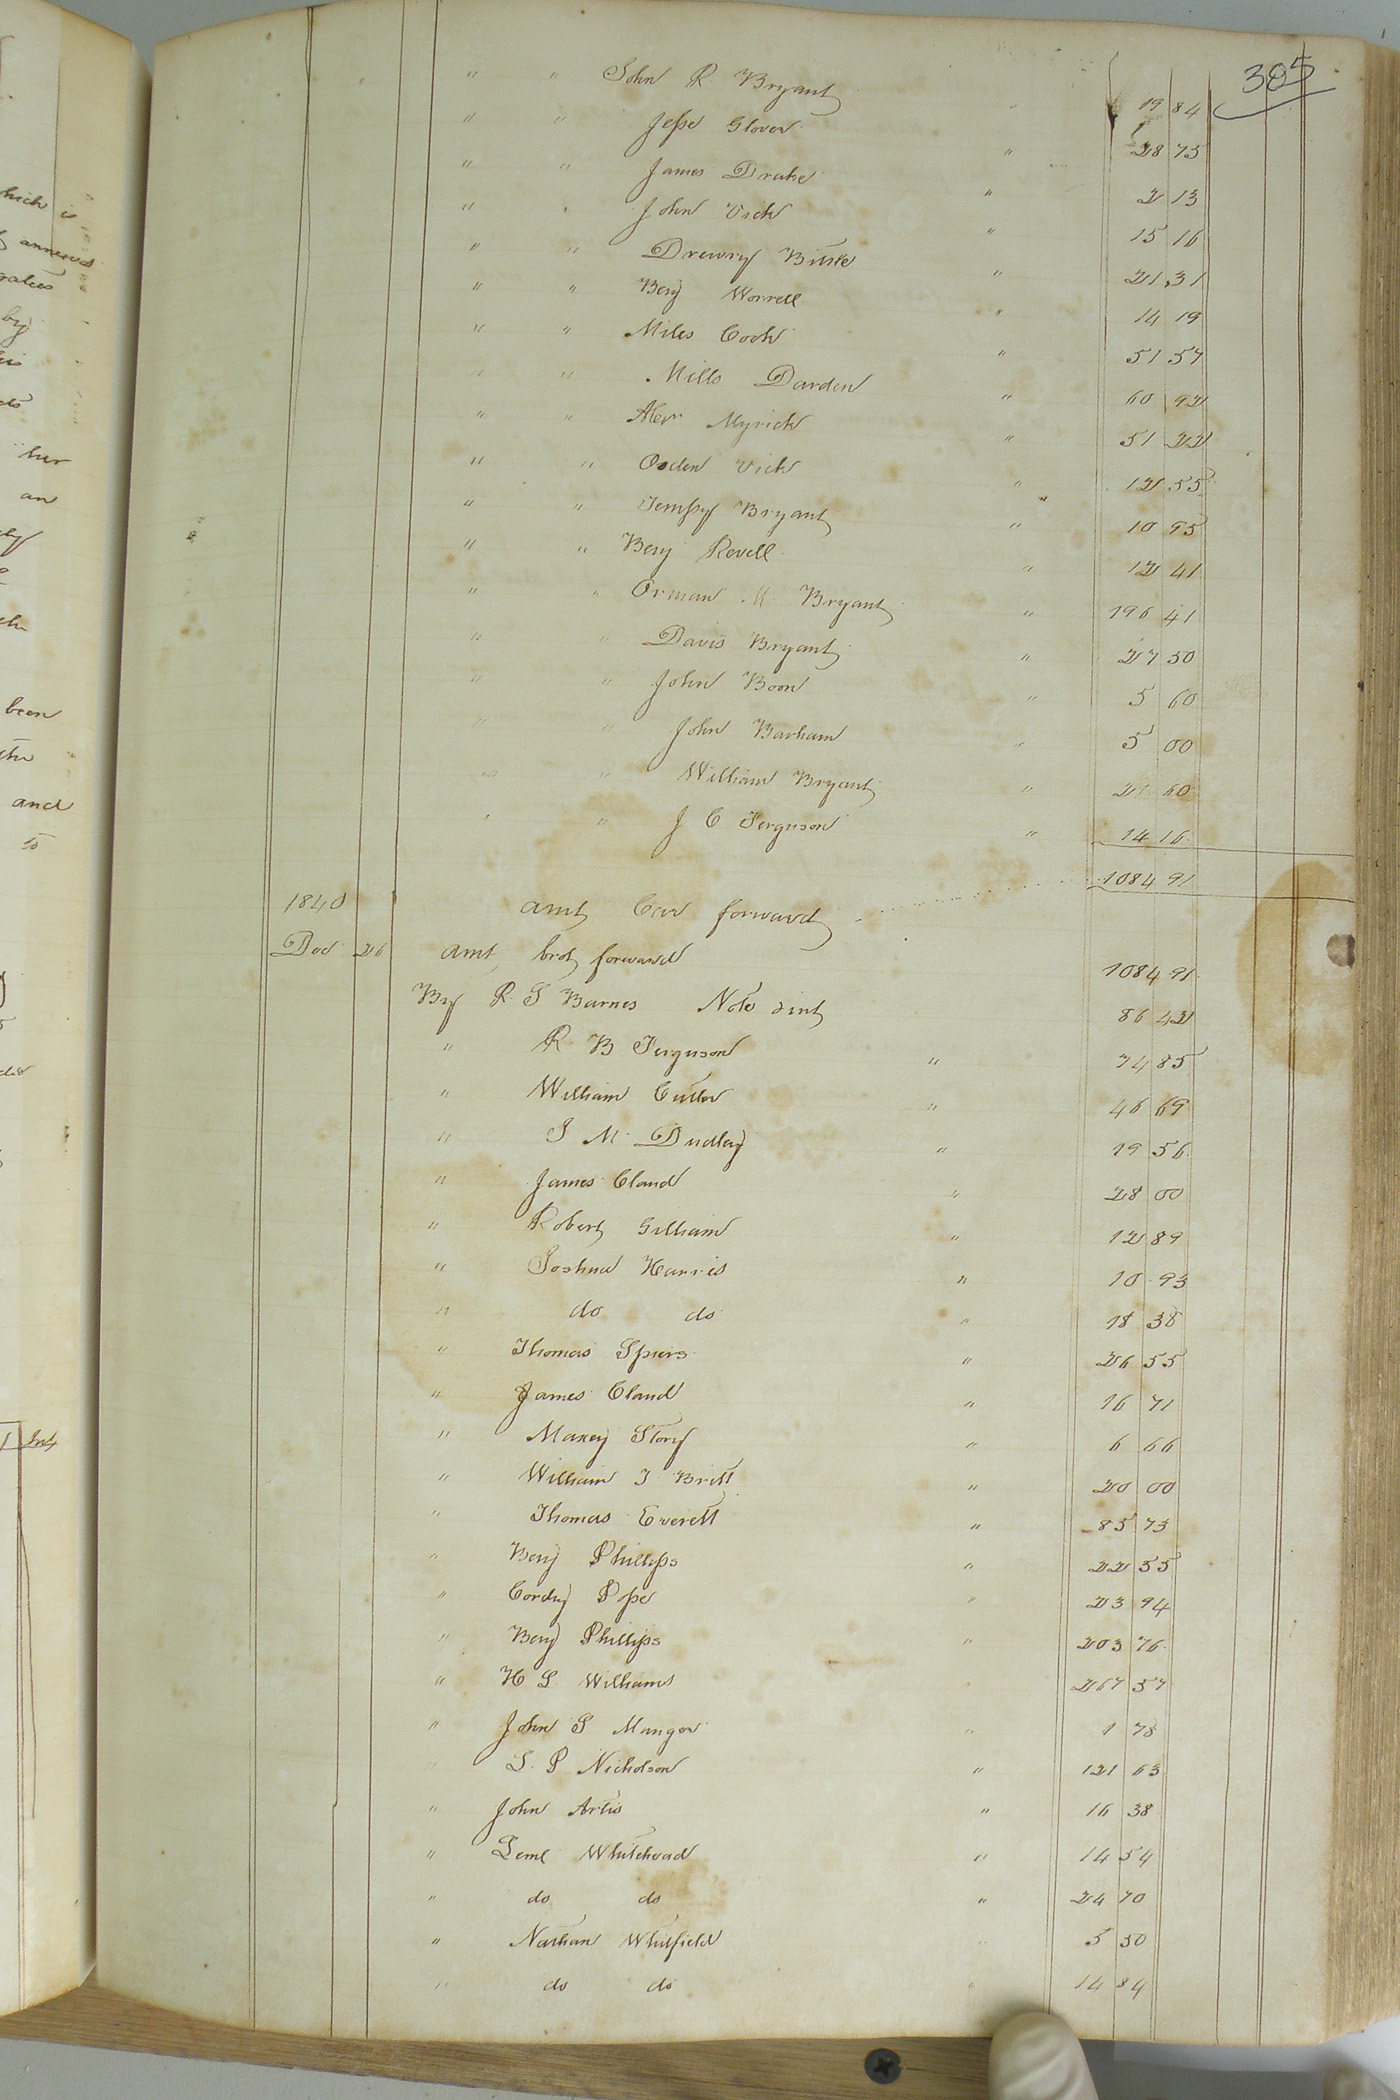 385
" " John R Bryant 19 84
" " Jesse Glover " 28 75
" " James Drake " 2 13
" " John Vick " 15 16
" " Drewry Bittle " 21 31
" " Benj Worrell " 14 19
" " Miles Cook " 51 57
" " Mills Darden " 60 92
" " Alexr Myrick " 51 22
" " Oden Vick " 12 55
" " Tempy Bryant " 10 95
" " Benj Revell " 12 41
" " Orman M Bryant " 196 41
" " Davis Bryant " 27 50
" " John Boon " 5 60
" " John Barham " 5 00
" " William Bryant " 21 60
" " J C Ferguson " 14 16
1840 amt Car forward 1084 91
Dec 26 amt brot forward 1084 91
By R. S Barnes Note & int 86 42
" R B Ferguson " 74 85
" William Cutler " 46 69
" S M Dudley " 19 56
" James Cland " 28 00
" Robert Gilliam " 12 89
" Joshua Harris " 10 93
" do do " 18 38
" Thomas Spiers " 26 55
" James Cland " 16 71
" Maxey Story " 6 66
" William J Britt " 20 00
" Thomas Everett " 85 73
" Benj Phillips " 22 55
" Cordy Pope " 23 94
" Benj Phillips " 203 76
" H S Williams " 267 57
" John S Manger " 1 78
" S. P Nicholson " 121 63
" John Artis " 16 38
" Leml Whitehead " 14 54
" do do " 24 70
" Nathan Whitfield " 5 50
" do do " 14 84
which is
annexed
by
her
an
been
the
and
to
Int